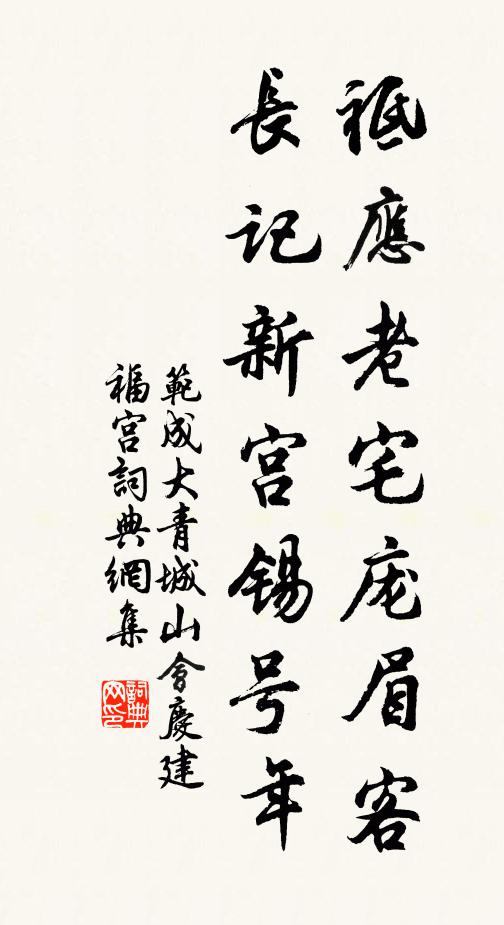 祗應老宅庞眉客
長記新宫錫号年
範成大青城山會慶建
福宫詞典網集
詞典
网印